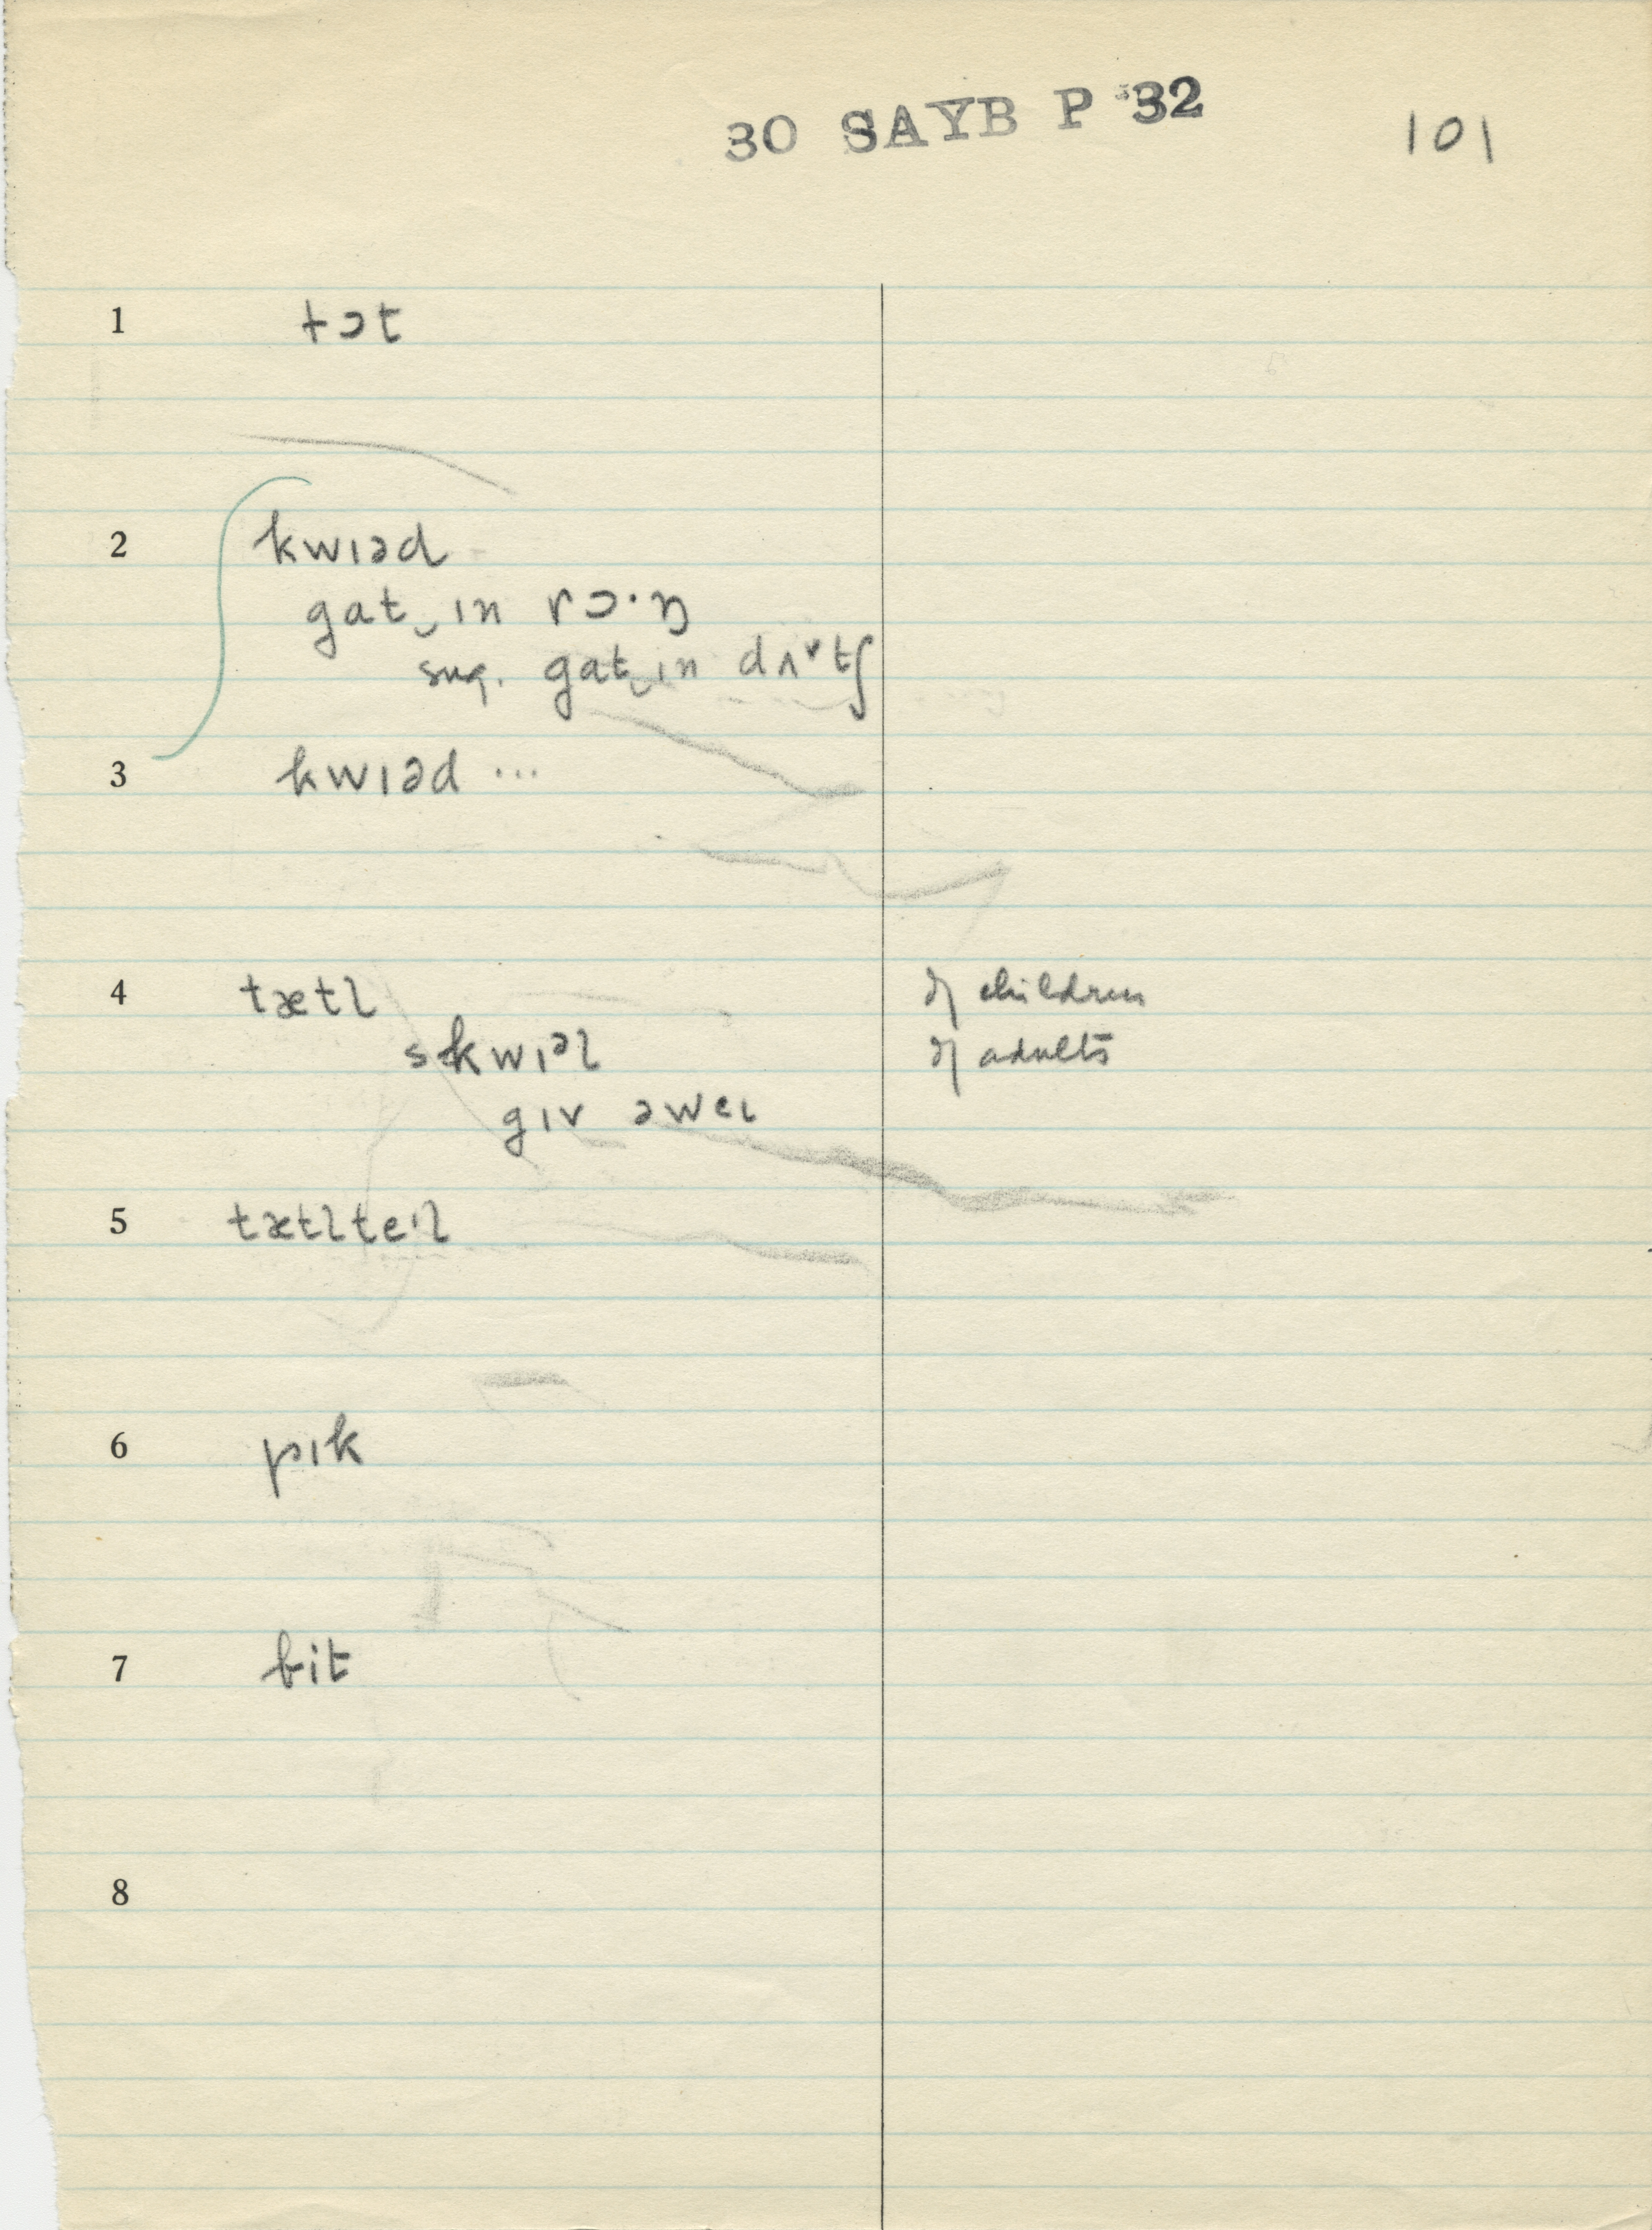 30 SAYB P 32
101
1 tɔt
2 kwɪəd
gat‿ɪn rɔ·ŋ
sug. gat‿ɪn dʌᵛtʃ
3 kwɪəd ...
4 tætl of children
skwɪəl of adults
gɪv əweɪ
5 tætlteɪl
6 pɪk
7 bit
8